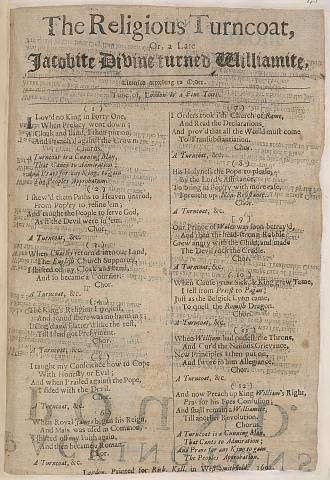 The Religious Turncoat,
Or, a Late
Jacobite Divine turned Williamite,
Licensed according to Order.
Tune of, London is a Fine Town.
(1)
I Lov'd no King in Forty One,
When Prelacy went down;
A Cloak and Band I then put on,
And Preach'd against the Crown
Chorus.
A Turncoat is a Cunning Man,
That Cants to Admiration;
And Prays for any King, to gain
The Peoples Approbation.
(2)
I shew'd them Paths to Heaven untrod,
From Popery to refine 'em;
And taught the People to serve God,
As if the Devil were in 'em.
Chor.
A Turncoat, &c.
When Charles return'd into our Land,
The English Church Supporter,
I shifted off my Cloak and Band,
And so became a Courtier.
Chor.
A Turncoat, &c.
The King's Religion I profest,
And found there was no harm in't
I Cog'd and Flatter'd like the rest,
Till I had got Preferment.
Chor.
A Turncoat, &c.
I taught my Conscience how to Cope
With Honesty or Evil
And when I railed against the Pope,
I sided with the Devil.
Chor.
A Turncoat, &c.
When Royal James began his Reign,
And Mass was used in Common,
I shifted off my Faith again,
And then became a Roman.
Chor.
A Turncoat, &c.
(7)
Orders took i'th Church of Rome,
And Read the Declarations,
And prov'd that all the World must come
To Transubstantiation.
Chor.
A Turncoat, &c.
(8)
His Holyness the Pope to please,
By the Lord's Assistance,
To bring in Popery with more ease,
I preach'd up
Chor.
A Turncoat, &c.
[9]
Our Prince of Wales was soon betray'd,
And then the head-strong Rabble
Grew angry with the Child, and made
The Devil rock the Cradle.
Chor.
A Turncoat, &c.
(10)
When Castle grew Sick, & King grew Tame,
I fell from Priest to Pagan;
Just as the Belgick Lion came,
To quell the Romish Dragon.
Chor.
A Turncoat, &c.
When William had possest the Throne,
And Cur'd the Nations Grievance,
New Principles I then put on,
And swore to him Allegiance.
Chor.
A Turncoat, &c.
(12)
And now Preach up King William's Right,
Pray for his Foes Confusion;
And shall remain a Williamite,
Till another Revolution.
Chorus.
A Turncoat is a Cunning Man,
That Cants to Admiration;
And Prays for any King to gain
The Peoples Approbation.
London, Printed for Rob. Kell, in West-Smithfield